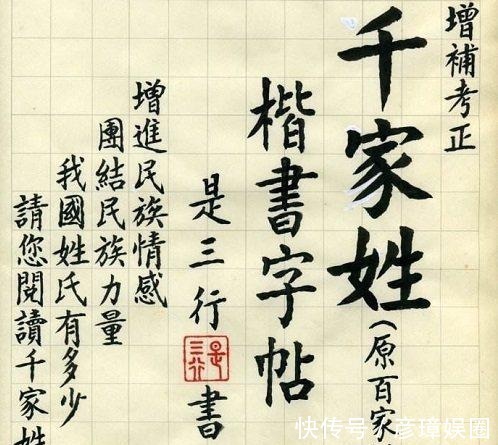 增補考正
千家姓(原百家
楷書字帖
是三行書
增進民族情感
團結民族力量
我國姓氏有多少
請您閱讀千家姓
快传号/彦璋娱圈